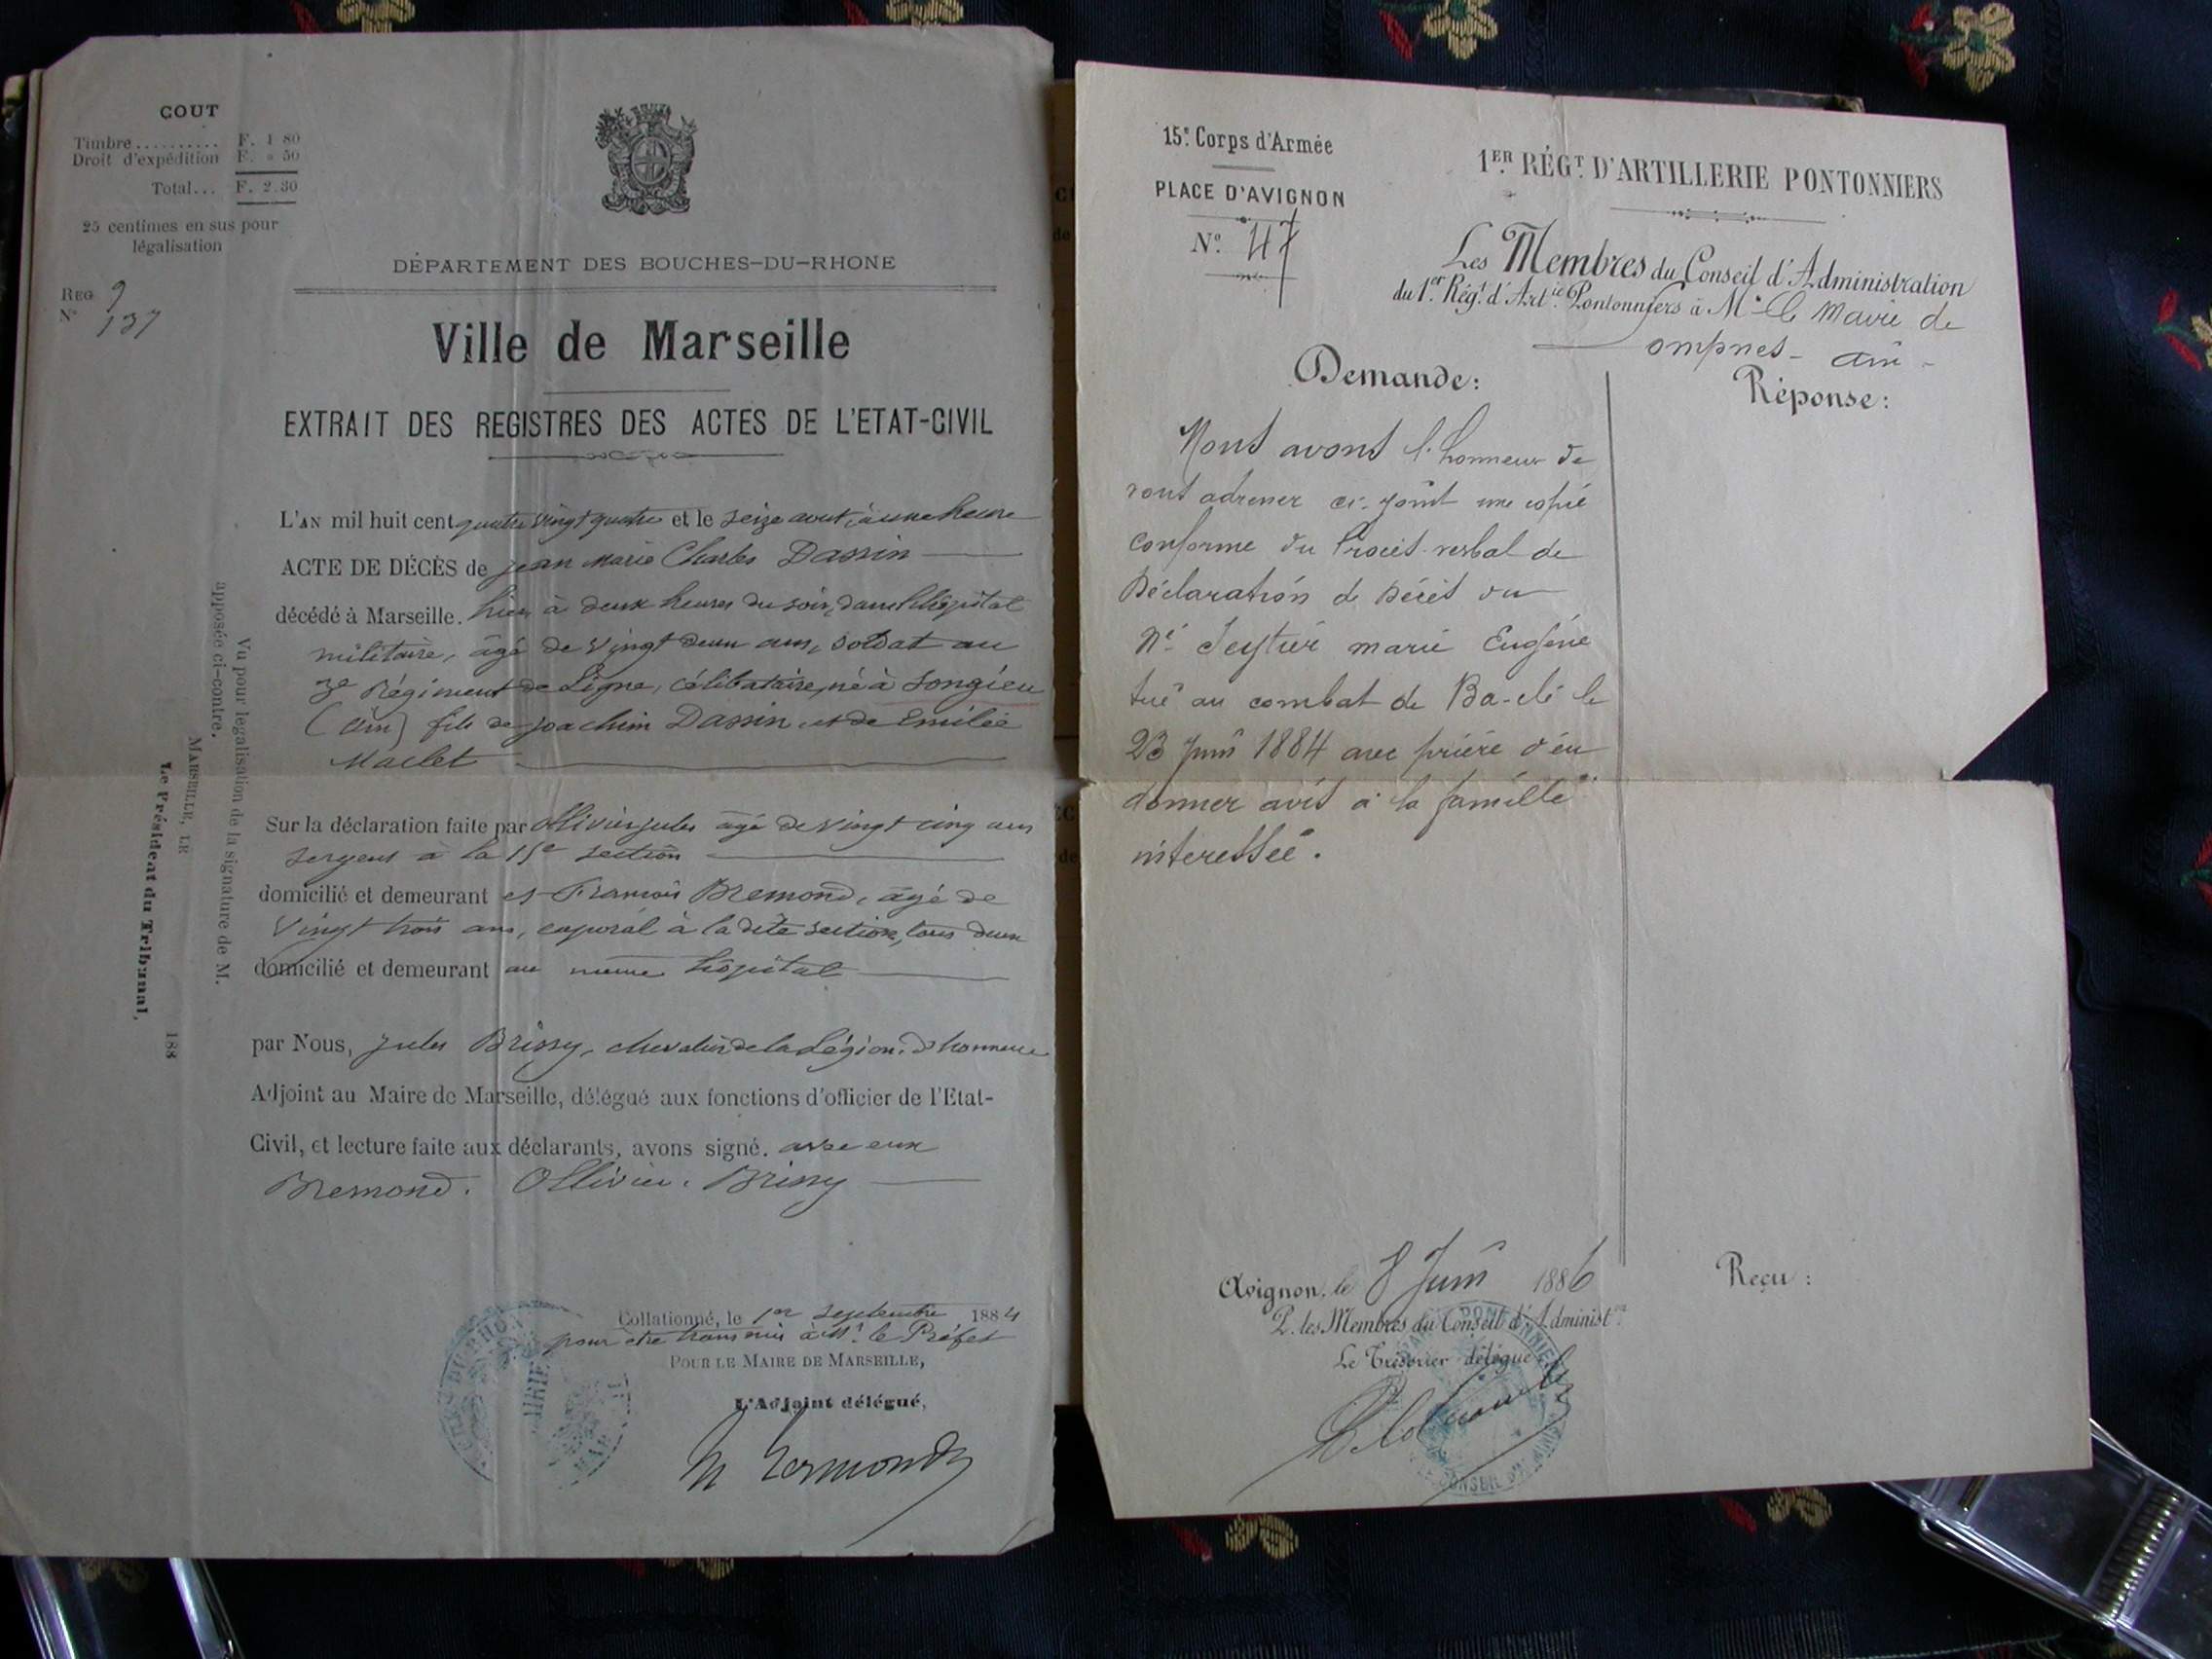 COUT
Timbre.......... F. 1 80
Droit d'expédition F. » 50
Total... F. 2.30
25 centimes en sus pour
légalisation
REG 9
N° 137
DÉPARTEMENT DES BOUCHES-DU-RHONE
Ville de Marseille
EXTRAIT DES REGISTRES DES ACTES DE L'ETAT-CIVIL
L'AN mil huit cent quatre vingt quatre et le seize aout, à une heure
ACTE DE DÉCÈS de Jean Marie Charles Dassin
décédé à Marseille. hier à deux heures du soir, dans l'hôpital
militaire, âgé de vingt deux ans, soldat au
3e Régiment de Ligne, célibataire, né à Songieu
(Ain) fils de Joachim Dassin et de Emilie
Maclet
Sur la déclaration faite par Ollivier Jules âgé de vingt cinq ans
sergent à la 15e section
domicilié et demeurant et François Bremond, âgé de
vingt trois ans, caporal à la dite section, tous deux
domicilié et demeurant au même hôpital
par Nous, Jules Brissy, chevalier de la Légion d'honneur
Adjoint au Maire de Marseille, délégué aux fonctions d'officier de l'Etat-
Civil, et lecture faite aux déclarants, avons signé. avec eux
Bremond. Ollivier. Brissy
Collationné, le 1er Septembre 1884
pour être transmis à Mr. le Préfet
POUR LE MAIRE DE MARSEILLE,
L'Adjoint délégué,
Vu pour légalisation de la signature de M.
apposée ci-contre.
MARSEILLE, LE 188
Le Président du Tribunal,
15e Corps d'Armée
PLACE D'AVIGNON
N° 47
1ER RÉGT D'ARTILLERIE PONTONNIERS
Les Membres du Conseil d'Administration
du 1er Régt d'Artie Pontonniers à Mr le Maire de
ompnes - Ain -
Demande:
Réponse:
Nous avons l'honneur de
vous adresser ci-joint une copie
conforme du Procès-verbal de
Déclaration de Décès du
Né Seytier Marie Eugéne
tué au combat de Ba-clé le
23 Juin 1884 avec prière d'en
donner avis à la famille
interessée.
Avignon, le 8 Juin 1886
P. les Membres du Conseil d'Administon
Le Trésorier délégué
Reçu :